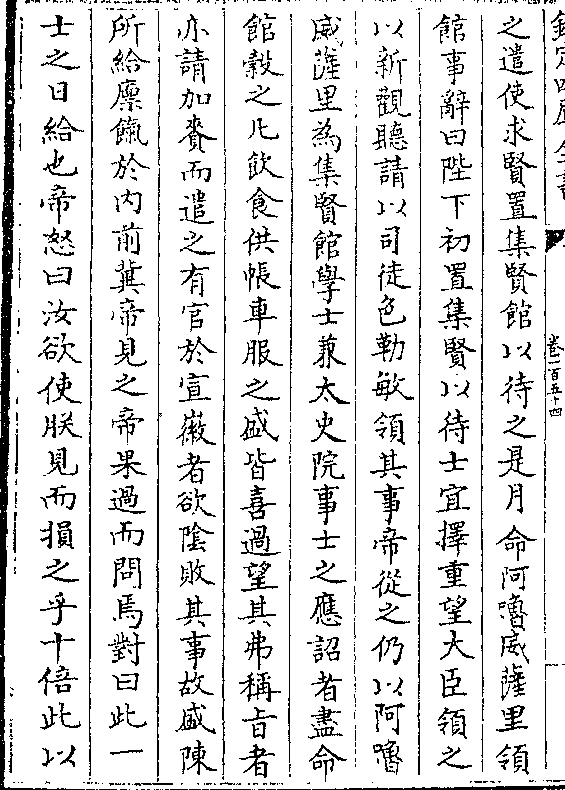 欽定四庫全書
卷一百五十四
之遣使求賢置集賢館以待之是月命阿嚕威薩里領
館事辭曰陛下初置集賢以待士宜擇重望大臣領之
以新觀聽請以司徒色勒敏領其事帝從之仍以阿嚕
威薩里為集賢館學士兼太史院事士之應詔者盡命
館穀之凡飲食供帳車服之盛皆喜過望其弗稱旨者
亦請加賚而遣之有官於宣徽者欲陰敗其事故盛陳
所給廩餼於内前冀帝見之帝果過而問焉對曰此一
士之日給也帝怒曰汝欲使朕見而損之乎十倍此以